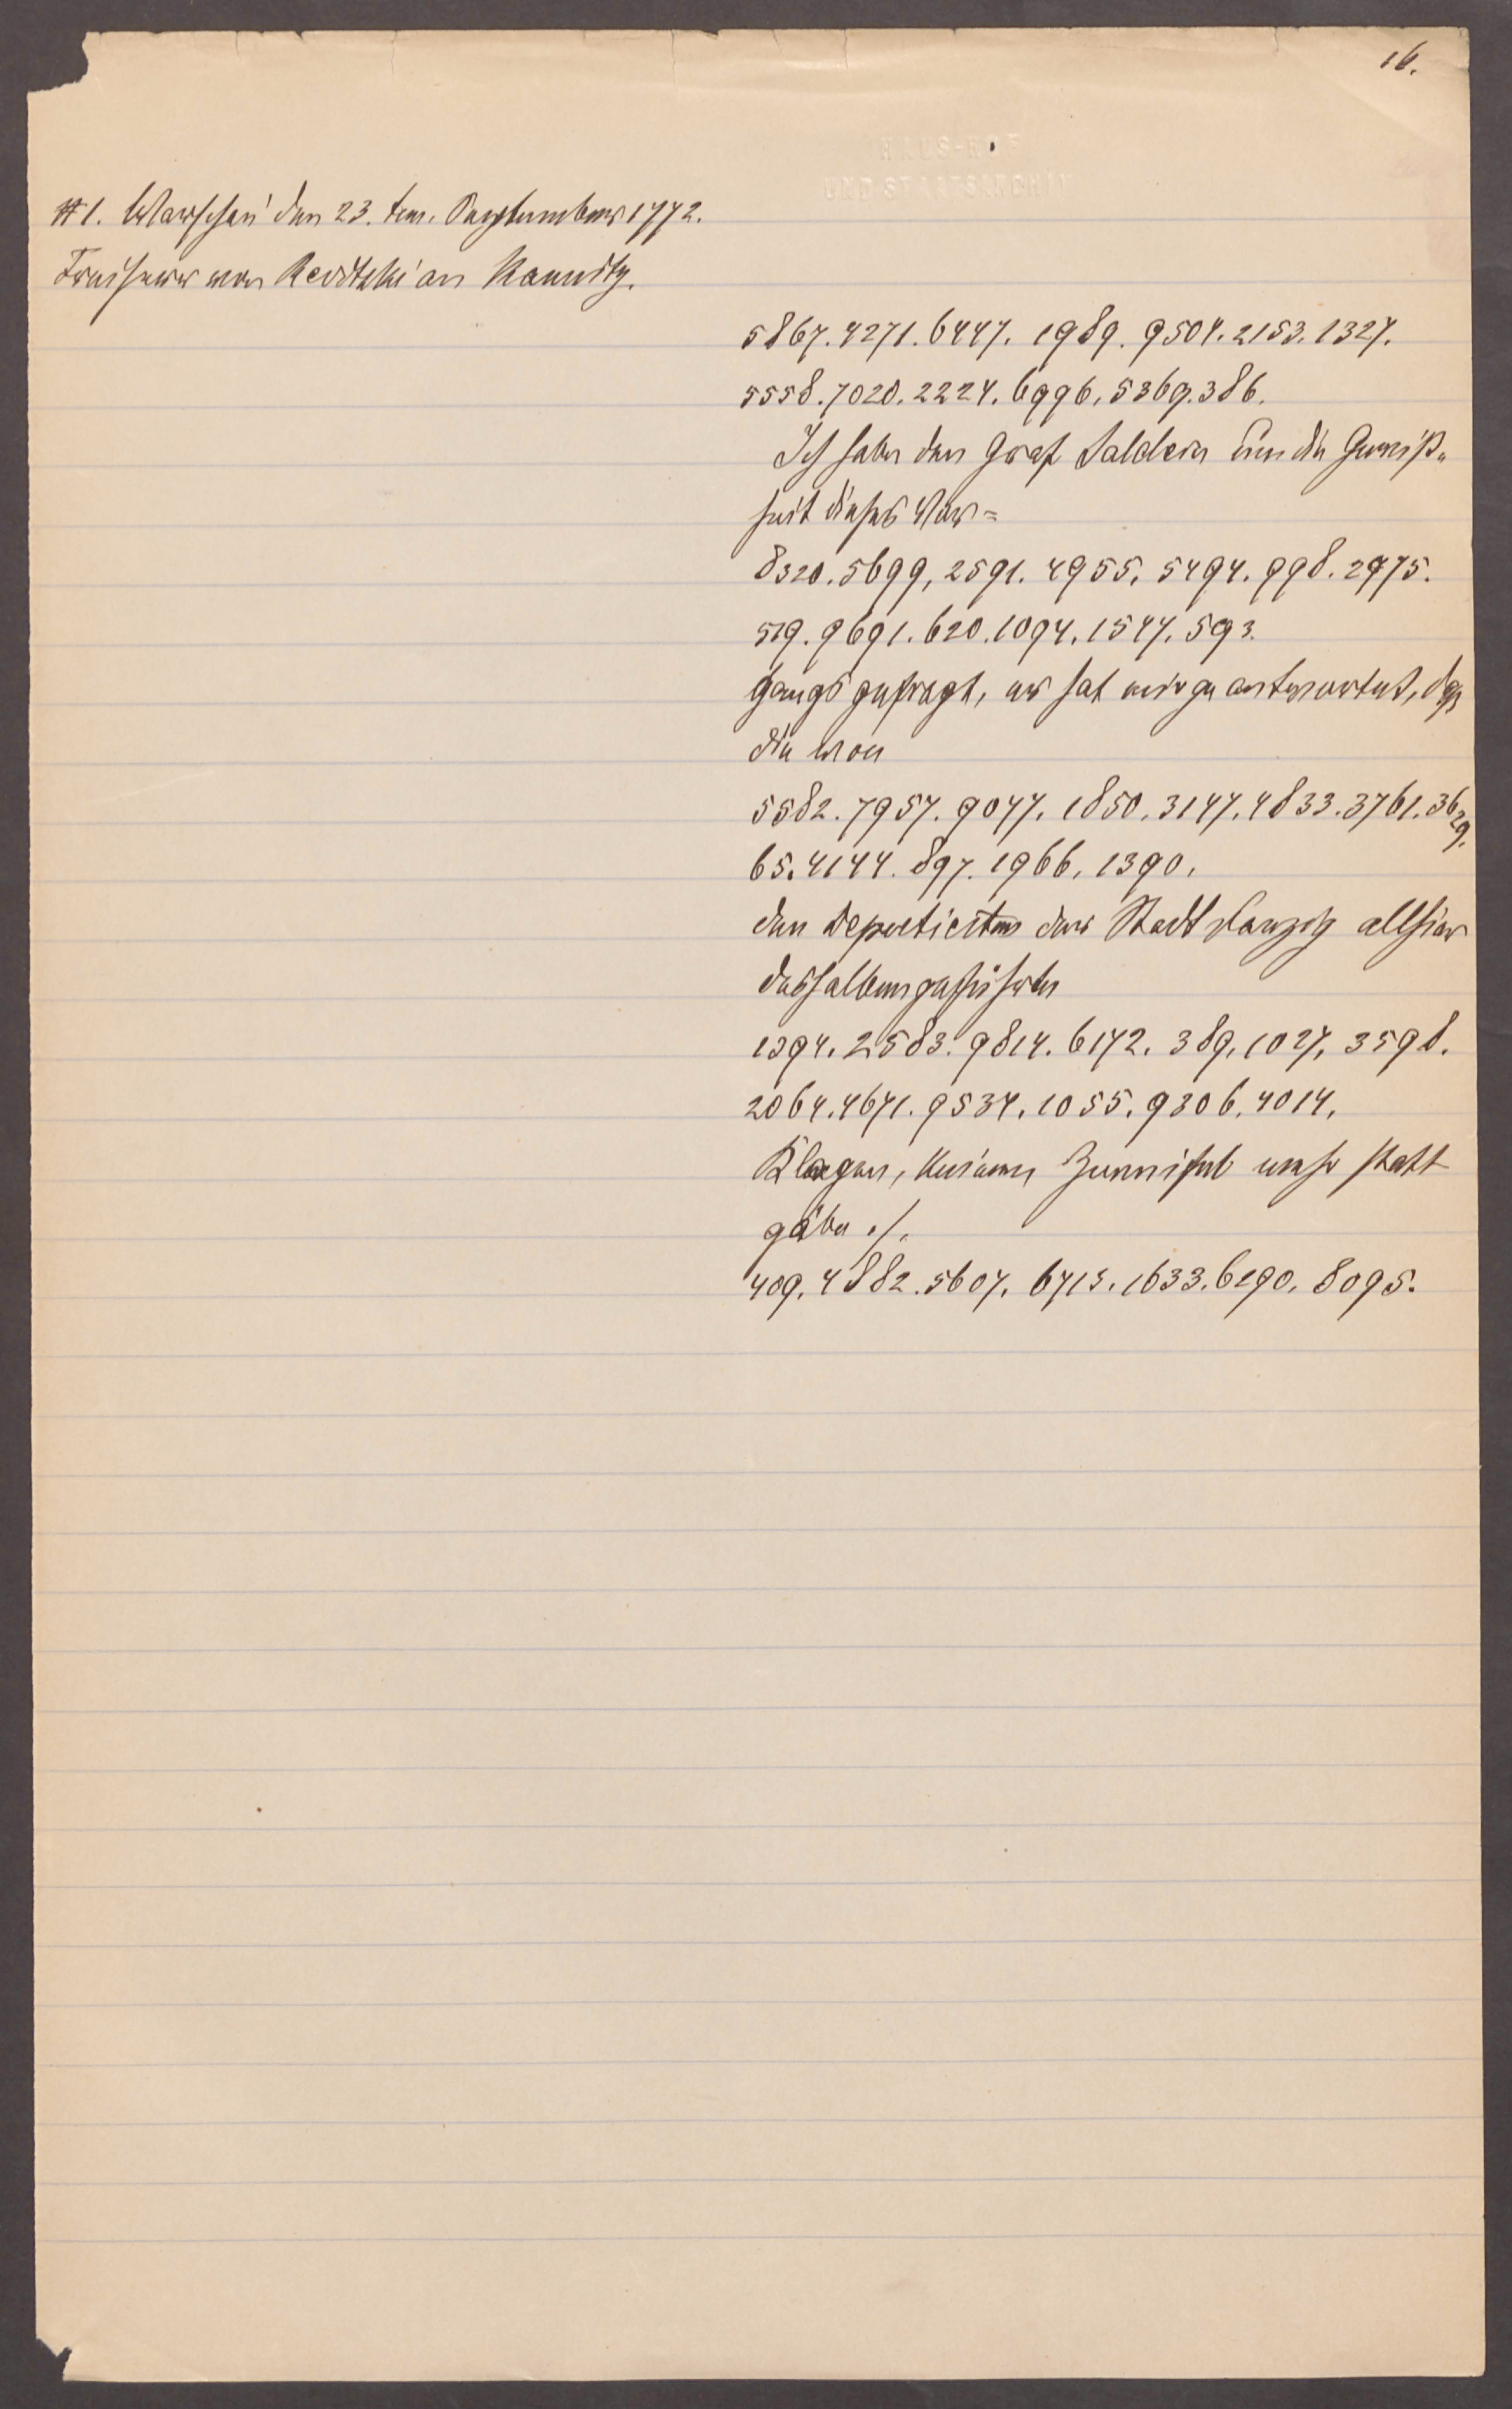 16.
HAUS-HOF
UND STAATSARCHIV
#1. Warschau den 23. ten. Septembers 1772.
Freiherr von Revitzki an Kaunitz.
5867. 4271. 6447. 1989. 9504. 2153. 1327.
5558. 7020. 2224. 6996. 5369. 386.
Ich habe den Graf Saldern um die Gewiß-
heit dieses Vor=
8320. 5699, 2591. 4955. 5494. 998. 2975.
519. 9691. 620. 1094. 1547. 593.
gangs gefragt, er hat mir geantwortet, daß
die von
5582. 7957. 9047. 1850. 3147. 4833. 3761. 3629.
65. 4144. 897. 1966. 1390.
den Deputierten der Stadt Danzig allhier
desthalben geführten
1394. 2583. 9814. 6172. 389. 1027. 3598.
2064. 4671. 9534. 1055. 9306. 4014.
Klagen, keinem Zweifel mehr statt
gäbe ./.
409. 4882. 5607. 6715. 1633. 6290. 8095.